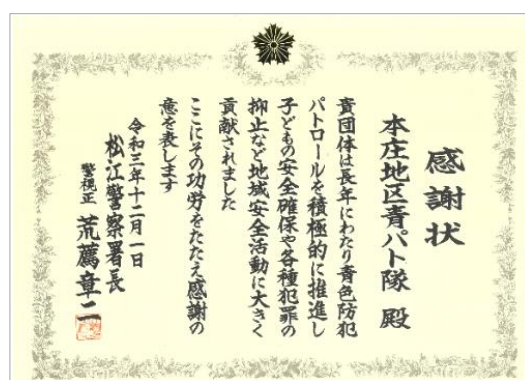 感謝状
本庄地区青パト隊 殿
貴団体は長年にわたり青色防犯
パトロールを積極的に推進し
子どもの安全確保や各種犯罪の
抑止など地域安全活動に大きく
貢献されました
ここにその功労をたたえ感謝の
意を表します
令和三年十二月一日
松江警察署長
警視正 荒薦章二